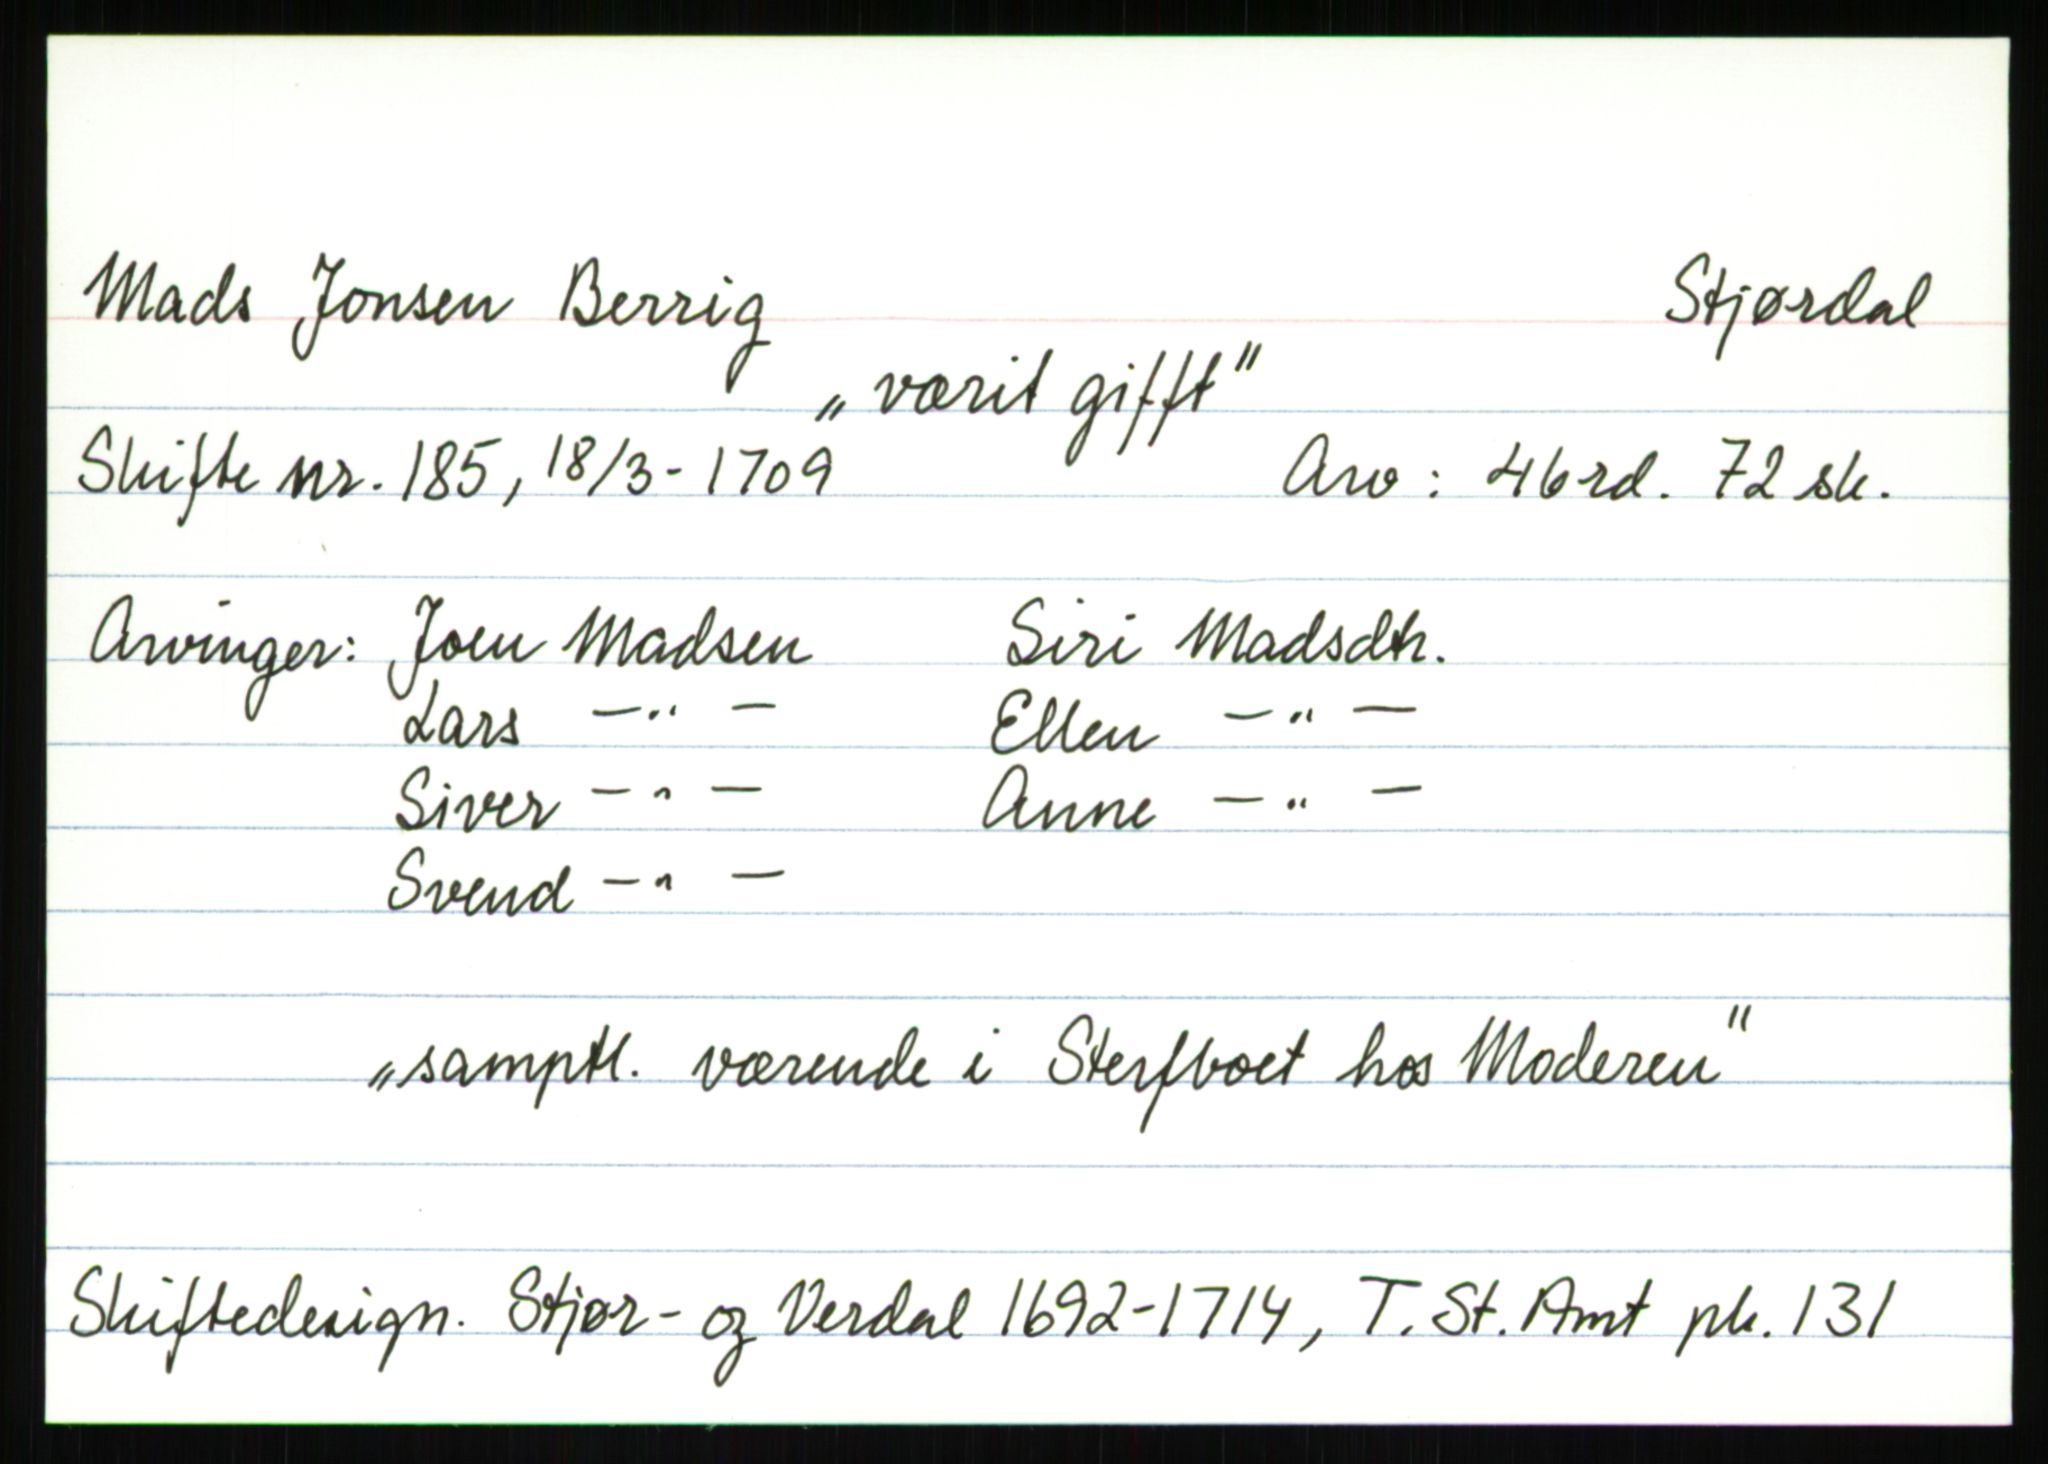 Mads Jonsen Berrig Stjørdal
„værit gifft"
Skifte nr. 185, 18/3-1709 Arv: 46 rd. 72 sk.
Arvinger: Joen Madsen Siri Madsdtr.
Lars —"— Ellen —"—
Siver —"— Anne —"—
Svend —"—
„samptl. værende i Sterfboet hos Moderen"
Skiftedesign. Stjør- og Verdal 1692-1714, T. St. Amt pk. 131